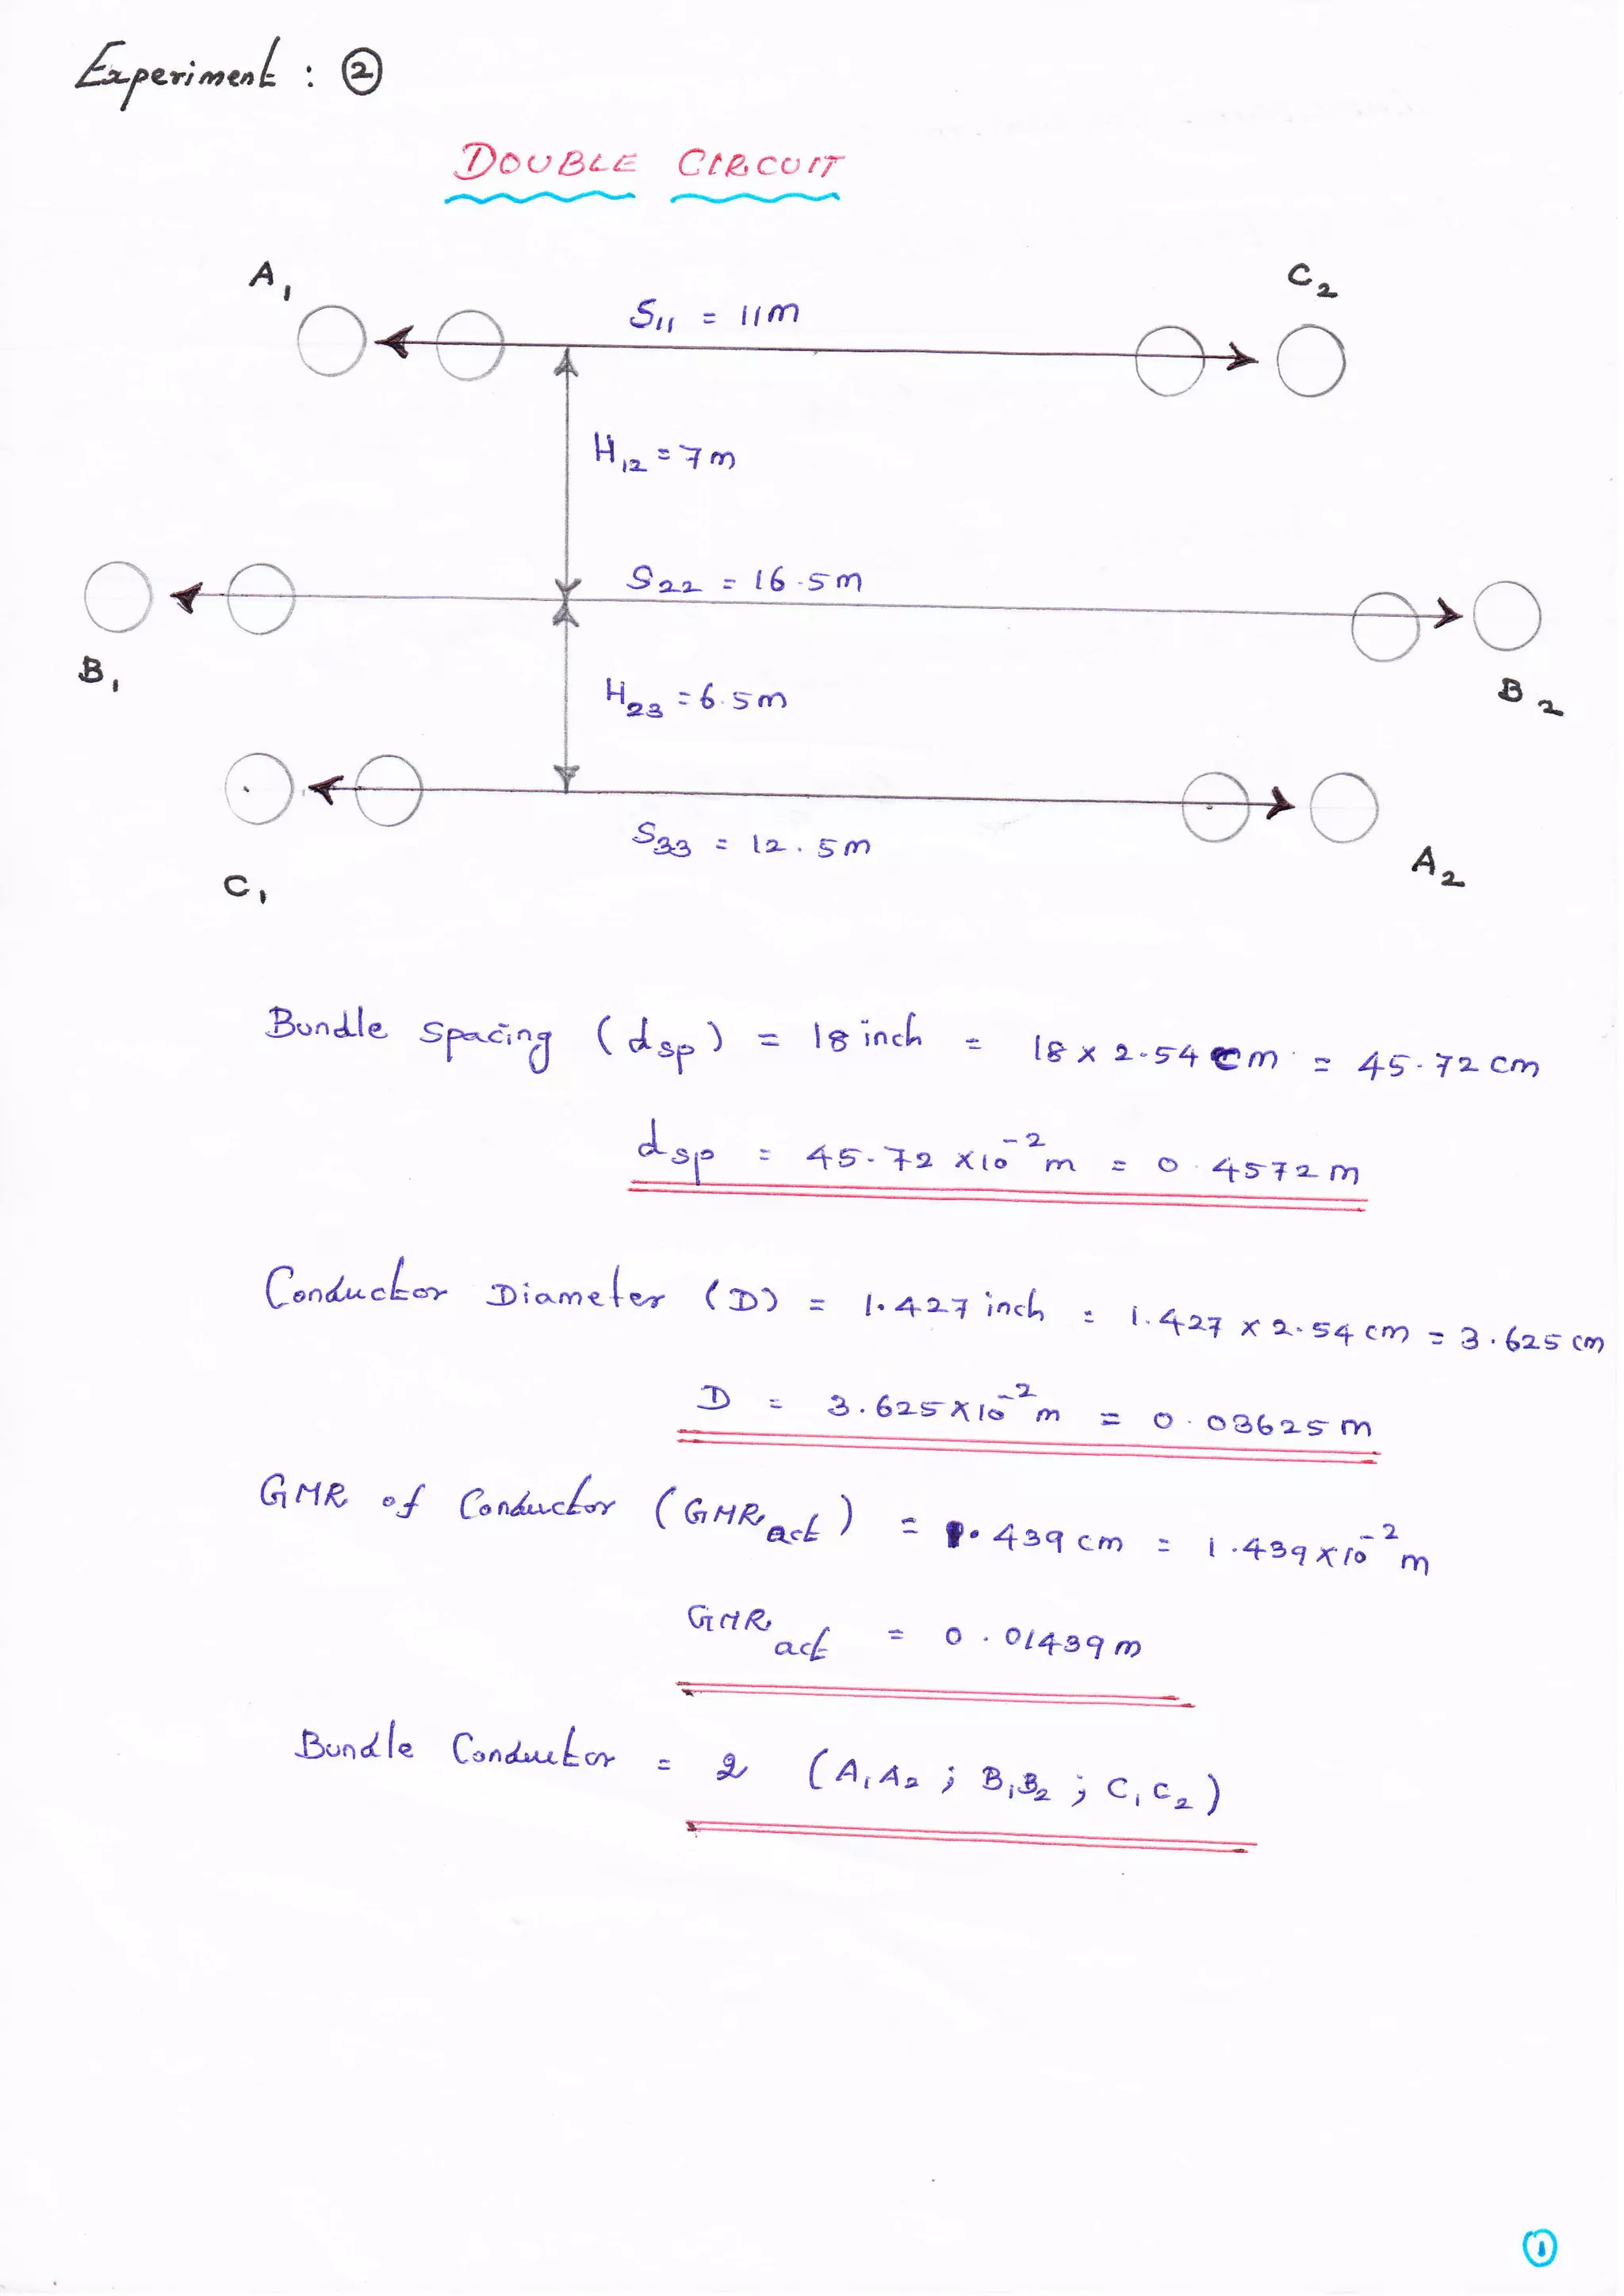 Experiment : ②
DOUBLE CIRCUIT
A₁
C₂
S₁₁ = 11m
H₁₂ = 7m
S₂₂ = 16.5m
B₁
H₂₃ = 6.5m
B₂
S₃₃ = 12.5m
C₁
A₂
Bundle spacing (d_sp) = 18 inch = 18 x 2.54 cm = 45.72 cm
d_sp = 45.72 x10⁻² m = 0.4572 m
Conductor Diameter (D) = 1.427 inch = 1.427 x 2.54 cm = 3.625 cm
D = 3.625 x 10⁻² m = 0.03625 m
GMR of Conductor (GMR_act) = 1.439 cm = 1.439 x 10⁻² m
GMR_act = 0.01439 m
Bundle Conductor = 2 (A₁A₂ ; B₁B₂ ; C₁C₂)
①